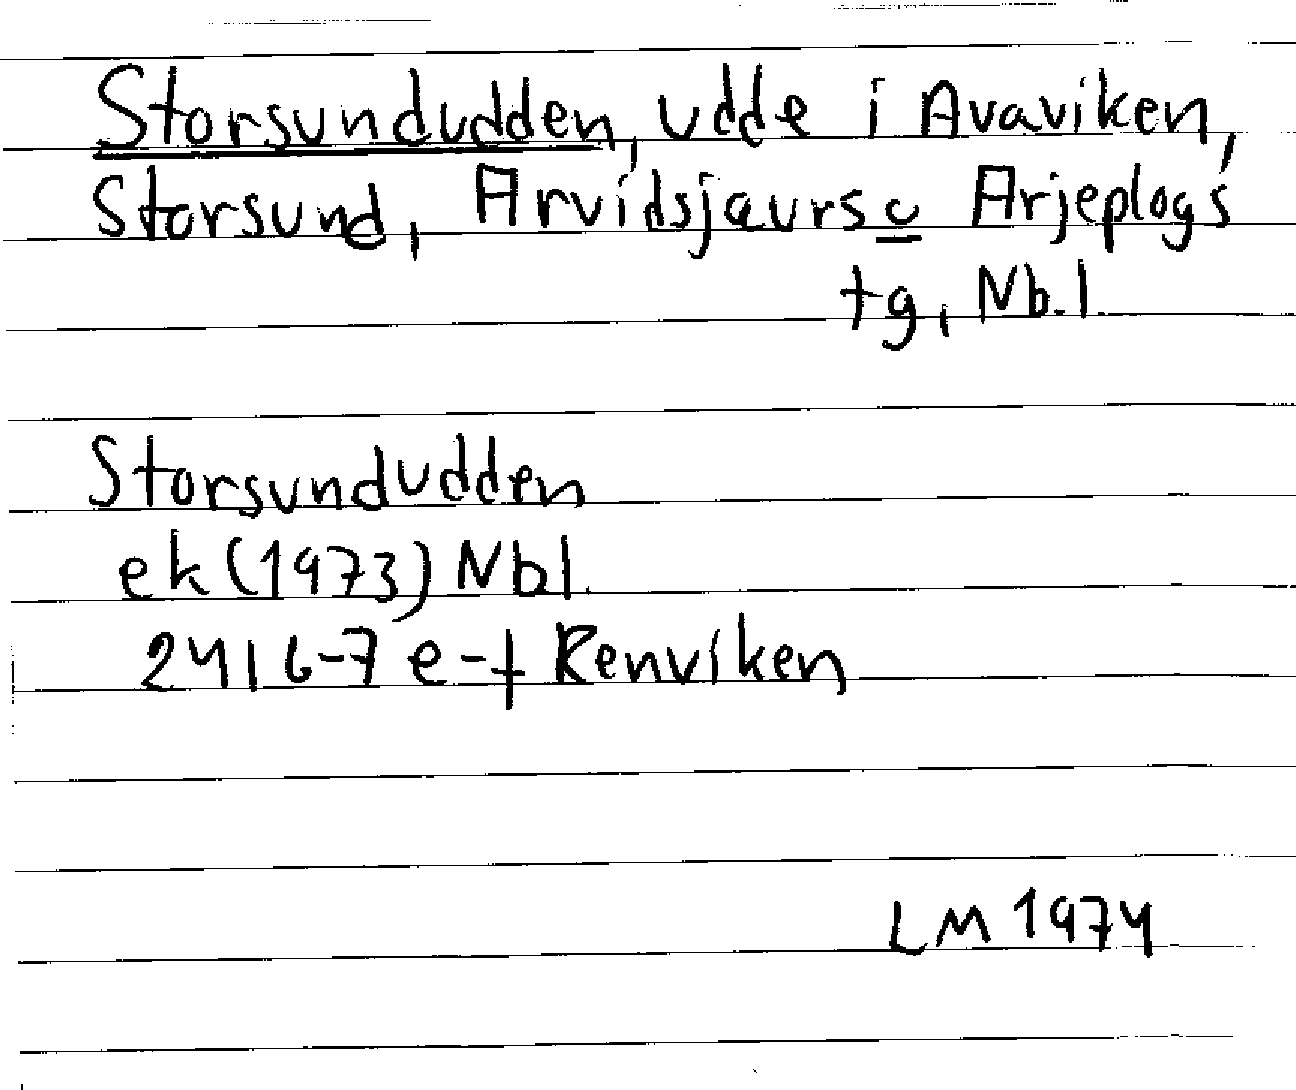 Storsundudden, udde i Avaviken,
Storsund, Arvidsjaurs o Arjeplogs
tg, Nb. l
Storsundudden
ek (1973) Nbl.
24I 6-7 e-f Renviken
LM 1974